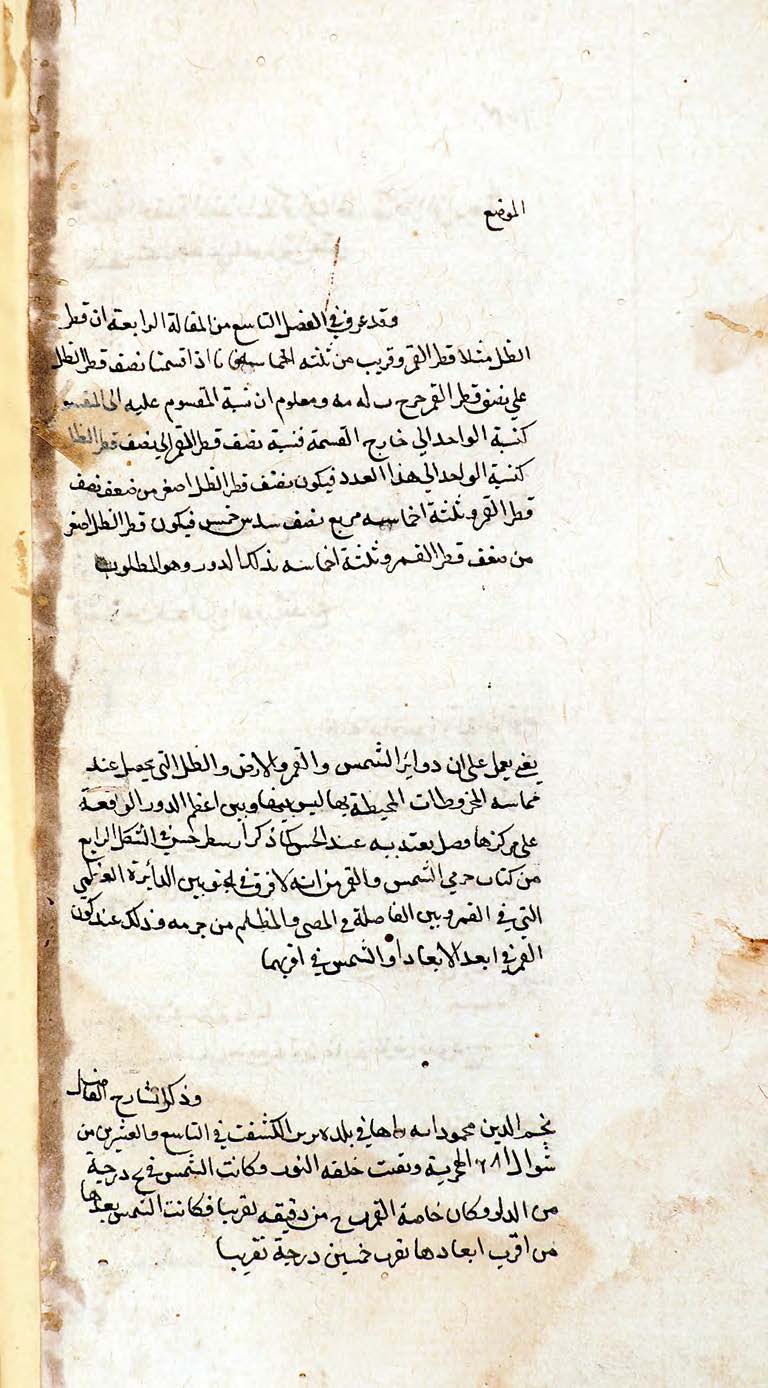 الموضع
وقد عرف في الفصل التاسع من المقالة الرابعة ان قطر
الظل مثلا قطر القمر وقريب من ثلثه اخماسه فانا اذا قسمنا نصف قطر الظل
علي نصف قطر القمر خرج ب له مه ومعلوم ان نسبة المقسوم عليه الى المقسوم
كنسبة الواحد الي خارج القسمة فنسبة نصف قطر القمر الي نصف قطر الظل
كنسبة الواحد الي هذا العدد فيكون نصف قطر الظل اصغر من ضعف نصف
قطر القمر وثلثة اخماسه مربع نصف سدس خمس فيكون قطر الظل اصغر
من ضعف قطر القمر وثلثة اخماسه بذلك الدور وهو المطلوب
يعني يعمل على ان دواير الشمس والقمر والارض والظل التي يحصل عند
مماسه المخروطات المحيطة بها ليس بينها وبين اعظم الدور الواقعة
على مركزها فصل يعتد به عند الحس كما ذكر ارسطرخس في الشكل الرابع
من كتاب جرمي الشمس والقمر من انه لا فرق في الحس بين الدايرة العظمي
التي في القمر وبين الفاصلة في المضي والمظلم من جرمه وذلك عند كون
القمر في ابعد الابعاد او الشمس في اقربها
وذكر الشارح الفاضل
نجم الدين محمود انه راها في بلده انكسفت في التاسع والعشرين من
شوال الهجرية وبقيت حلقه النور وكانت الشمس في درجة
من الدلو وكان خاصة القمر من دقيقه تقريبا فكانت الشمس بعدها
من اقرب ابعادها بقرب خمسين درجة تقريبا